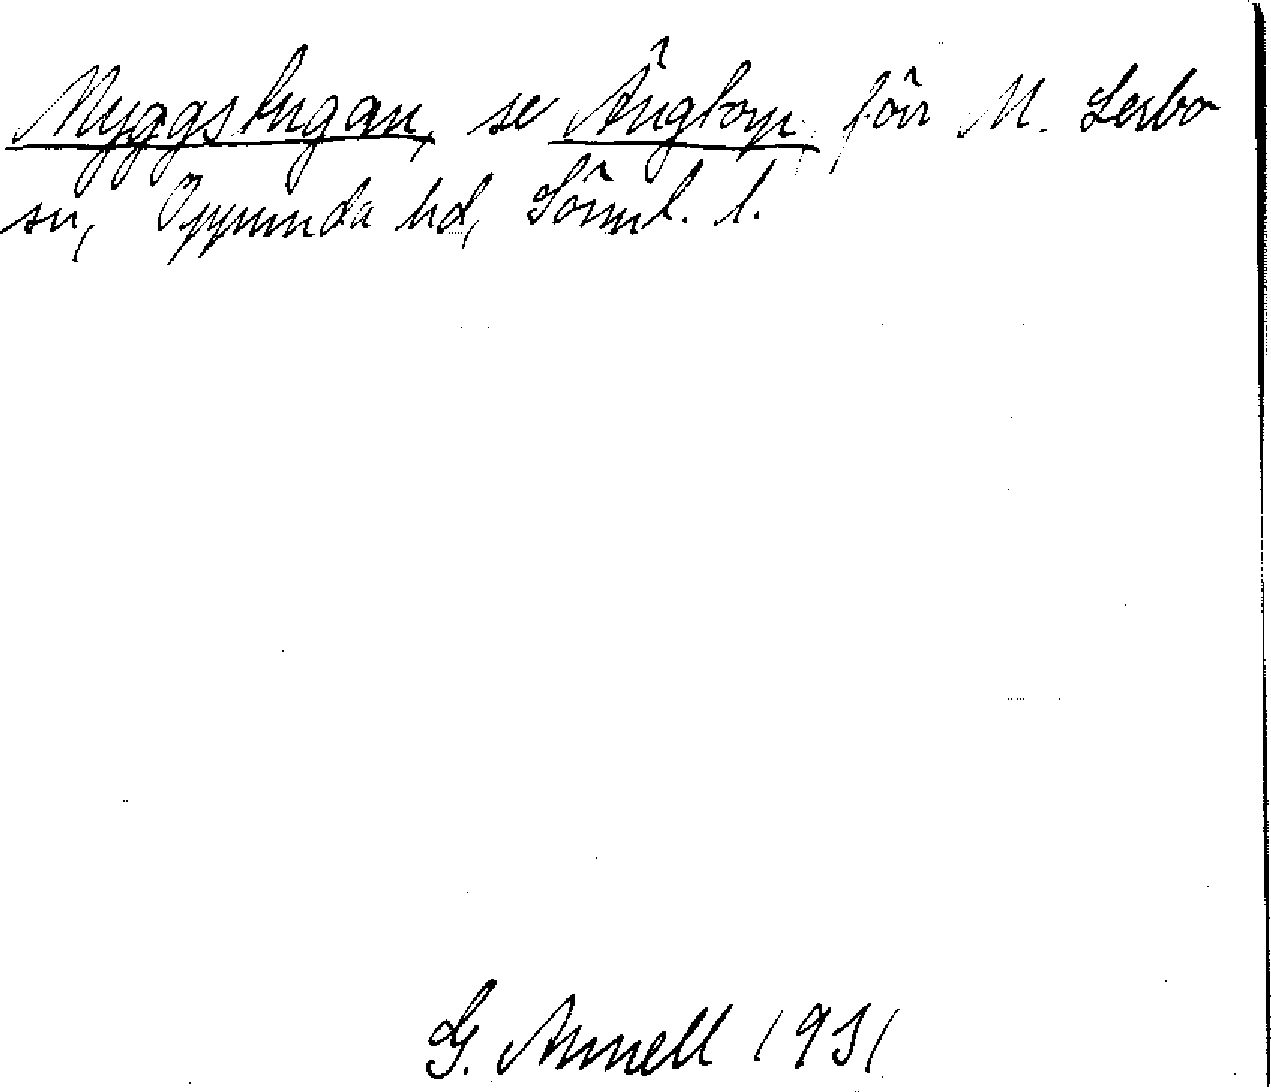 Myggstugan, se Ängtorp, förr M. Lerbo
sn, Oppunda hd, Söml. l.
G. Annell 1931